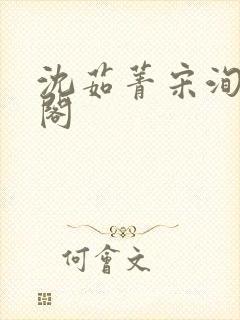 沈茹菁宋洵
閣
何會文